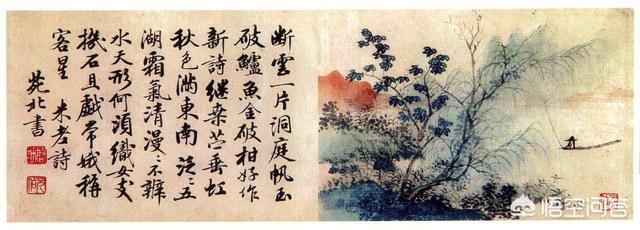 断雲一片洞庭帆玉
破鱸魚金破柑好作
新詩継桑苧垂虹
秋色滿東南泛〻五
湖霜氣清漫〻不辨
水天形何須織女支
機石且戲常娥稱
客星 米老詩
苑北書
悟空问答